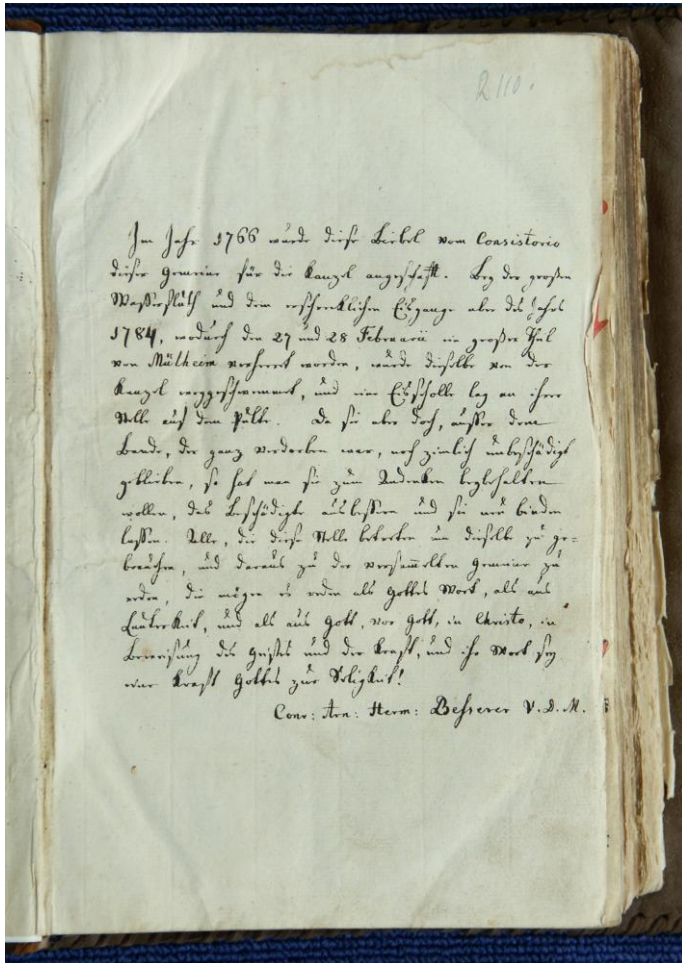 2110.
Im Jahr 1766 wurde diese Biebel vom Consistorio
dieser Gemeine für die Kanzel angeschafft. Bey der großen
Wasserfluth und dem erschrecklichen Eisgange aber des Jahrs
1784, wodurch den 27 und 28 Februarii ein großer Theil
von Mülheim verheert worden, wurde dieselbe von der
Kanzel weggeschwemmt, und eine Eisscholle lag an ihrer
Stelle auf dem Pulte. Da sie aber doch, ausser dem
Bande, der ganz verdorben war, noch zimlich unbeschädigt
geblieben, so hat man sie zum Andenken beybehalten
wollen, das Beschädigte ausbessern und sie neu binden
lassen. Alle, die diese Stelle betreten um dieselbe zu ge-
brauchen, und daraus zu der versammelten Gemeine zu
reden, die mögen es reden als Gottes Wort, als aus
Lauterkeit, und als aus Gott, vor Gott, in Christo, in
Beweisung des Geistes und der Kraft, und ihr Wort sey
eine Kraft Gottes zur Seligkeit!
Conr: Arn: Herm: Besserer V. D. M.